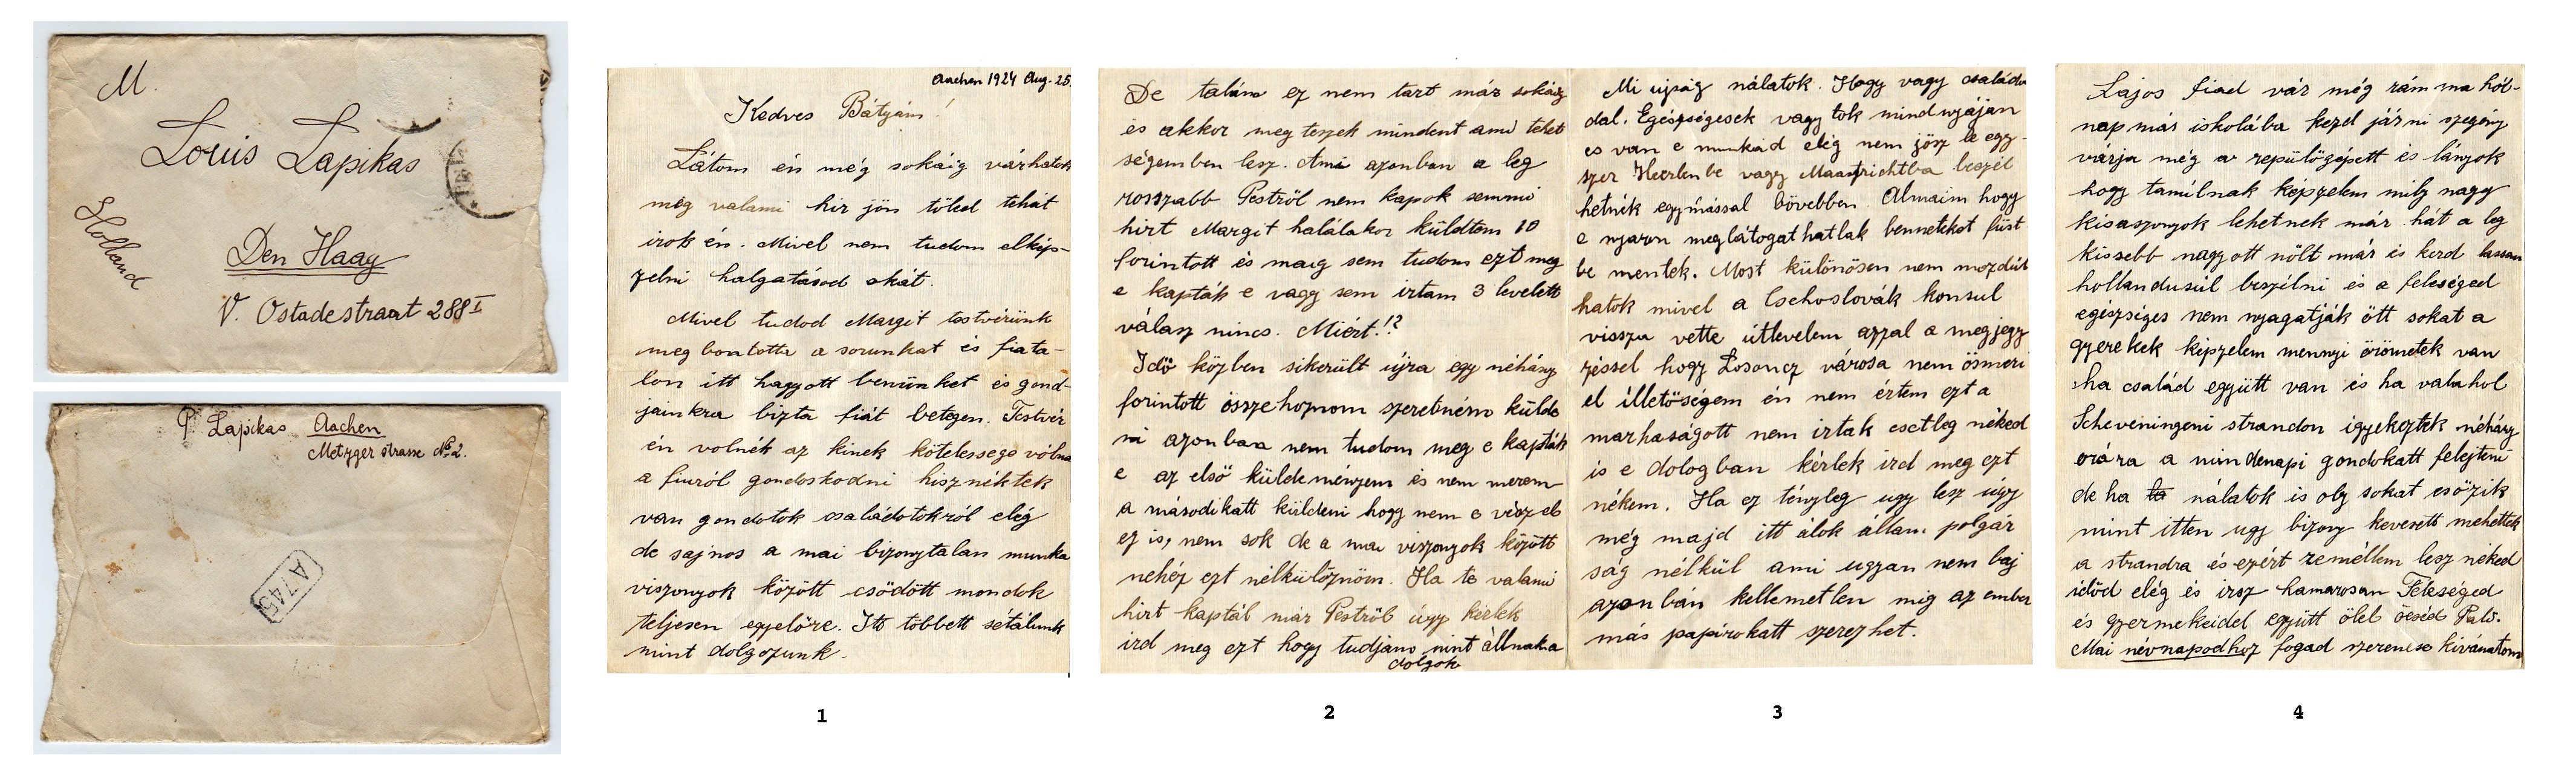 M.
Louis Lapikas
Holland
Den Haag
V. Ostadestraat 288 I
P. Lapikas Aachen
Metzger strasse No 2.
A745
Aachen 1924 Aug. 25.
Kedves Bátyám!
Látom én még sokáig várhatok
még valami hir jön töled tehát
irok én. Mivel nem tudom elkép-
zelni halgatásod okát.
Mivel tudod Margit testvérünk
meg bontotta a sorunkat és fiata-
lon itt hagyott benünket és gond-
jainkra bizta fiát betegen. Testvér
én volnék az kinek kötelessege vólna
a fiuról gondoskodni hisznéktek
van gondotok családotokról elég
de sajnos a mai bizonytalan munka
viszonyok között csödött mondok
teljesen egyelőre. Itt többett sétálunk
mint dolgozunk.
1
De talán ez nem tart már sokáig
és akkor meg teszek mindent ami tehet
ségemben lesz. Ami azonban a leg
rosszabb Pestről nem kapok semmi
hirt Margit halálakor küldtem 10
forintott és maig sem tudom ezt meg
e kapták e vagy sem irtam 3 levelett
válasz nincs. Miért!?
Idő közben sikerült újra egy néhány
forintott összehoznom szeretném külde
ni azonban nem tudom meg e kapták
e az első küldeményem és nem merem
a másodikatt küldeni hogy nem e vész el
ez is, nem sok de a mai viszonyok között
nehéz ezt nélkülöznöm. Ha te valami
hirt kaptál már Pestről úgy kérlek
ird meg ezt hogy tudjam mint állnak a
dolgok
2
Mi ujság nálatok. Hogy vagy családo
dal. Egészségesek vagy tok mindnyájan
es van e munkád elég nem jösz le egy-
szer Heerlenbe vagy Maastrichtba beszél
hetnék egymással bövebben. Álmaim hogy
e nyaron meglátogathatlak benneteket füst
be mentek. Most különösen nem mozdúl
hatok mivel a Cschoslovák konsul
vissza vette útlevelem azzal a megjegy
zéssel hogy Losoncz városa nem ösmeri
el illetöségem én nem értem ezt a
marhaságott nem irtak esetleg néked
is e dologban kérlek ird meg ezt
nékem. Ha ez tényleg ugy lesz úgy
még majd itt álok állam polgár
ság nélkül ami ugyan nem baj
azonbán kellemetlen mig az ember
más papirokatt szerezhet.
3
Lajos fiad vár még rám ma hól-
nap már iskolába kezd járni szegény
várja még a repülögépett és lányok
hogy tanúlnak képzelem mily nagy
kisaszonyok lehetnek már. hát a leg
kissebb nagyott nőlt már és kezd lassan
hollandusúl beszélni és a feleséged
egészséges nem nyagatják ött sokat a
gyerekek képzelem mennyi örömetek van
ha család együtt van és ha valahol
Scheveningeni strandon igyekeztek néhány
orára a mindenapi gondokatt felejteni
de ha nálatok is oly sokat esözik
mint itten ugy bizony kevesett mehettek
a strandra és ezért remélem lesz néked
idöd elég és irsz hamarosan Feleséged
és gyermekeidel együtt ölel öcséd Pali.
Mai névnapodhoz fogad szerencse kivánatom
4